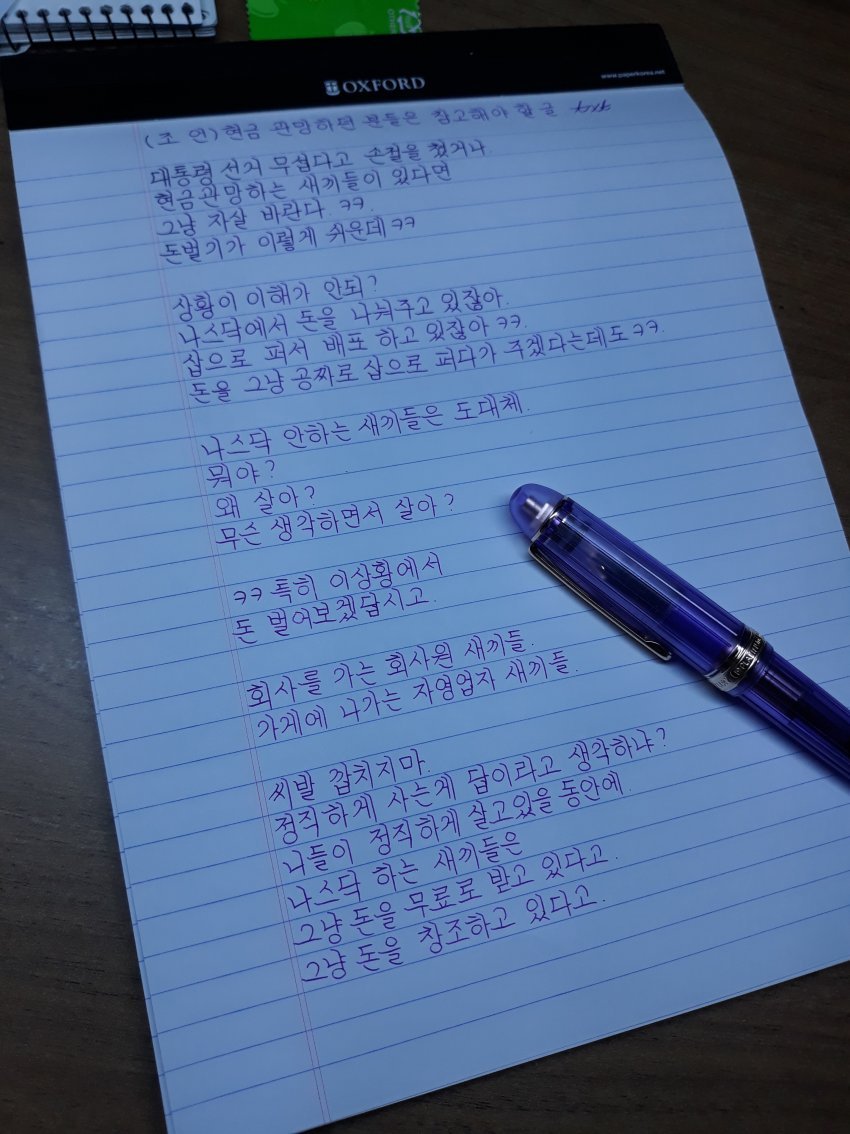 OXFORD
www.paperkorea.net
(조 언) 현금 관망하던 분들은 참고해야 할 글
대통령 선거 무섭다고 손절을 쳤거나.
현금관망하는 새끼들이 있다면
그냥 자살 바란다. ㅋㅋ
돈벌기가 이렇게 쉬운데 ㅋㅋ
상황이 이해가 안되?
나스닥에서 돈을 나눠주고 있잖아.
삽으로 퍼서 배포 하고 있잖아 ㅋㅋ.
돈을 그냥 공짜로 삽으로 퍼다가 주겠다는데도 ㅋㅋ.
나스닥 안하는 새끼들은 도대체.
뭐야?
왜 살아?
무슨 생각하면서 살아?
ㅋㅋ 특히 이상황에서
돈 벌어보겠답시고.
회사를 가는 회사원 새끼들.
가게에 나가는 자영업자 새끼들.
씨발 깝치지마.
정직하게 사는게 답이라고 생각하냐?
니들이 정직하게 살고있을 동안에.
나스닥 하는 새끼들은
그냥 돈을 무료로 받고 있다고.
그냥 돈을 창조하고 있다고.